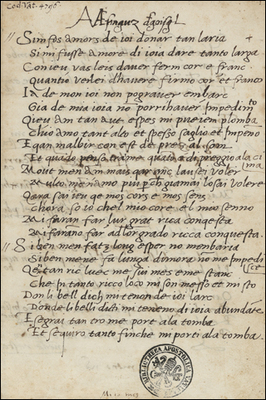 Sim fos amors de ioi donar tan laria
Si mi fusse amore di ioia dare tanto larga
Con ieu vas leis daver ferm cor e franc
Quantio ver lei dhavere firmo cor et franco
Ia de mon ioi non pograuer embarc
Gia de mia ioia no porrihauer impedimto
Qieu am tan aut espes mi puei en plomba
Chio amo tant alto et spesso saglio et impeno
E qan malbir con est de prez al som
Et quado penso tra me quato a de pregio ala cima
Mout men am mais qar anc lausei voler
Molto me namo piu perche giamai losai volere
Qara sai ieu qe mos cors e mos senz
Chora so io chel mio core el mio senno
Mi faran far lur grat rica conqesta
Mi farano far ad lor grado ricca conquesta.
Si ben men fatz long esper no menbaria
Si ben mene fa lunga dimora no me impedisce
Qe tan ric luec me sui mes e me stanc
Che in tanto ricco loco mi son messo et mi sto
Don li bell dich mi tenon de ioi larc
Donde li belli dicti mi teneno di ioia abundate
E segrai tan tro me port ala tomba
Et seguiro tanto finche mi porti ala tomba.